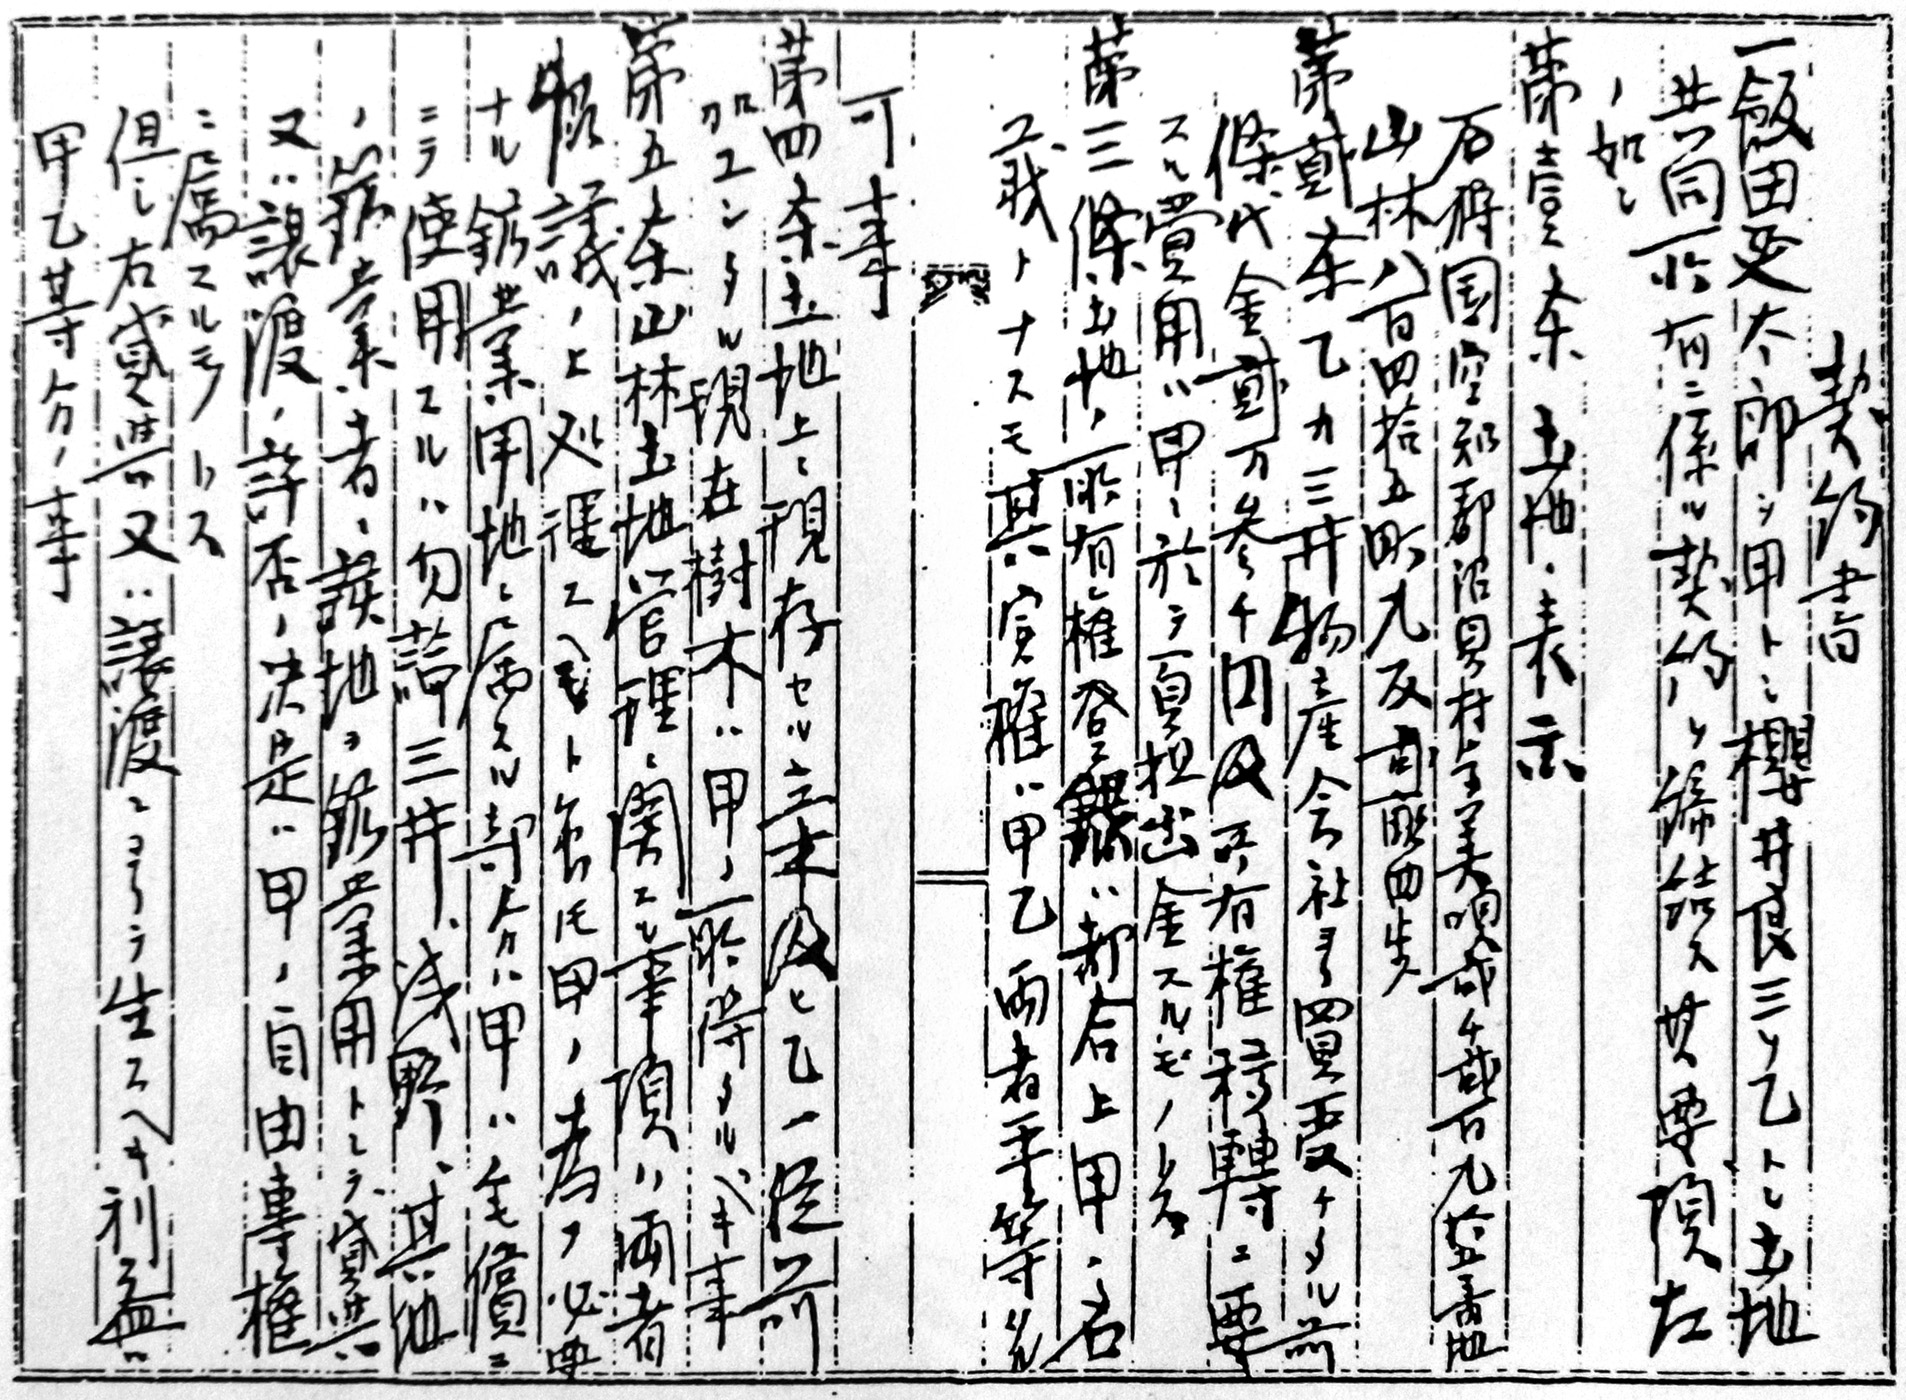 契約書
一飯田延太郎ヲ甲トシ櫻井良三ヲ乙トシ土地
共同所有ニ係ル契約ヲ締結ス其要項左
ノ如シ
第壹条 土地ノ表示
石狩国空知郡沼貝村字美唄弐千弐百九拾壹番地
山林八百四拾五町九反弐畝四歩
第貳条乙カ三井物産会社ヨリ買受ケタル前
條代金貳万参千円及所有権移轉ニ要
スル費用ハ甲ニ於テ負担出金スルモノトス
第三條土地ノ所有権登録ハ都合上甲ノ名
義トナスモ其実権ハ甲乙両者平等タル
可事
第四条土地上ニ現存セル立木及ヒ乙ノ従前
加工シタル現在樹木ハ甲ノ所得タルベキ事
第五条山林土地管理ニ関スル事項ハ両者
協議ノ上処理スヘキモト雖モ甲ノ為メ必要
ナル鉱業用地ニ属スル部分ハ甲ハ無償ニ
テ使用スルハ勿論三井、浅野、其他
ノ鉱業者ニ該地ヲ鉱業用トシテ貸與
又ハ譲渡ノ許否ノ決定ハ甲ノ自由專權
ニ属スルモノトス
但シ右貸與又ハ譲渡ニヨリテ生スヘキ利益ハ
甲乙等分ノ事